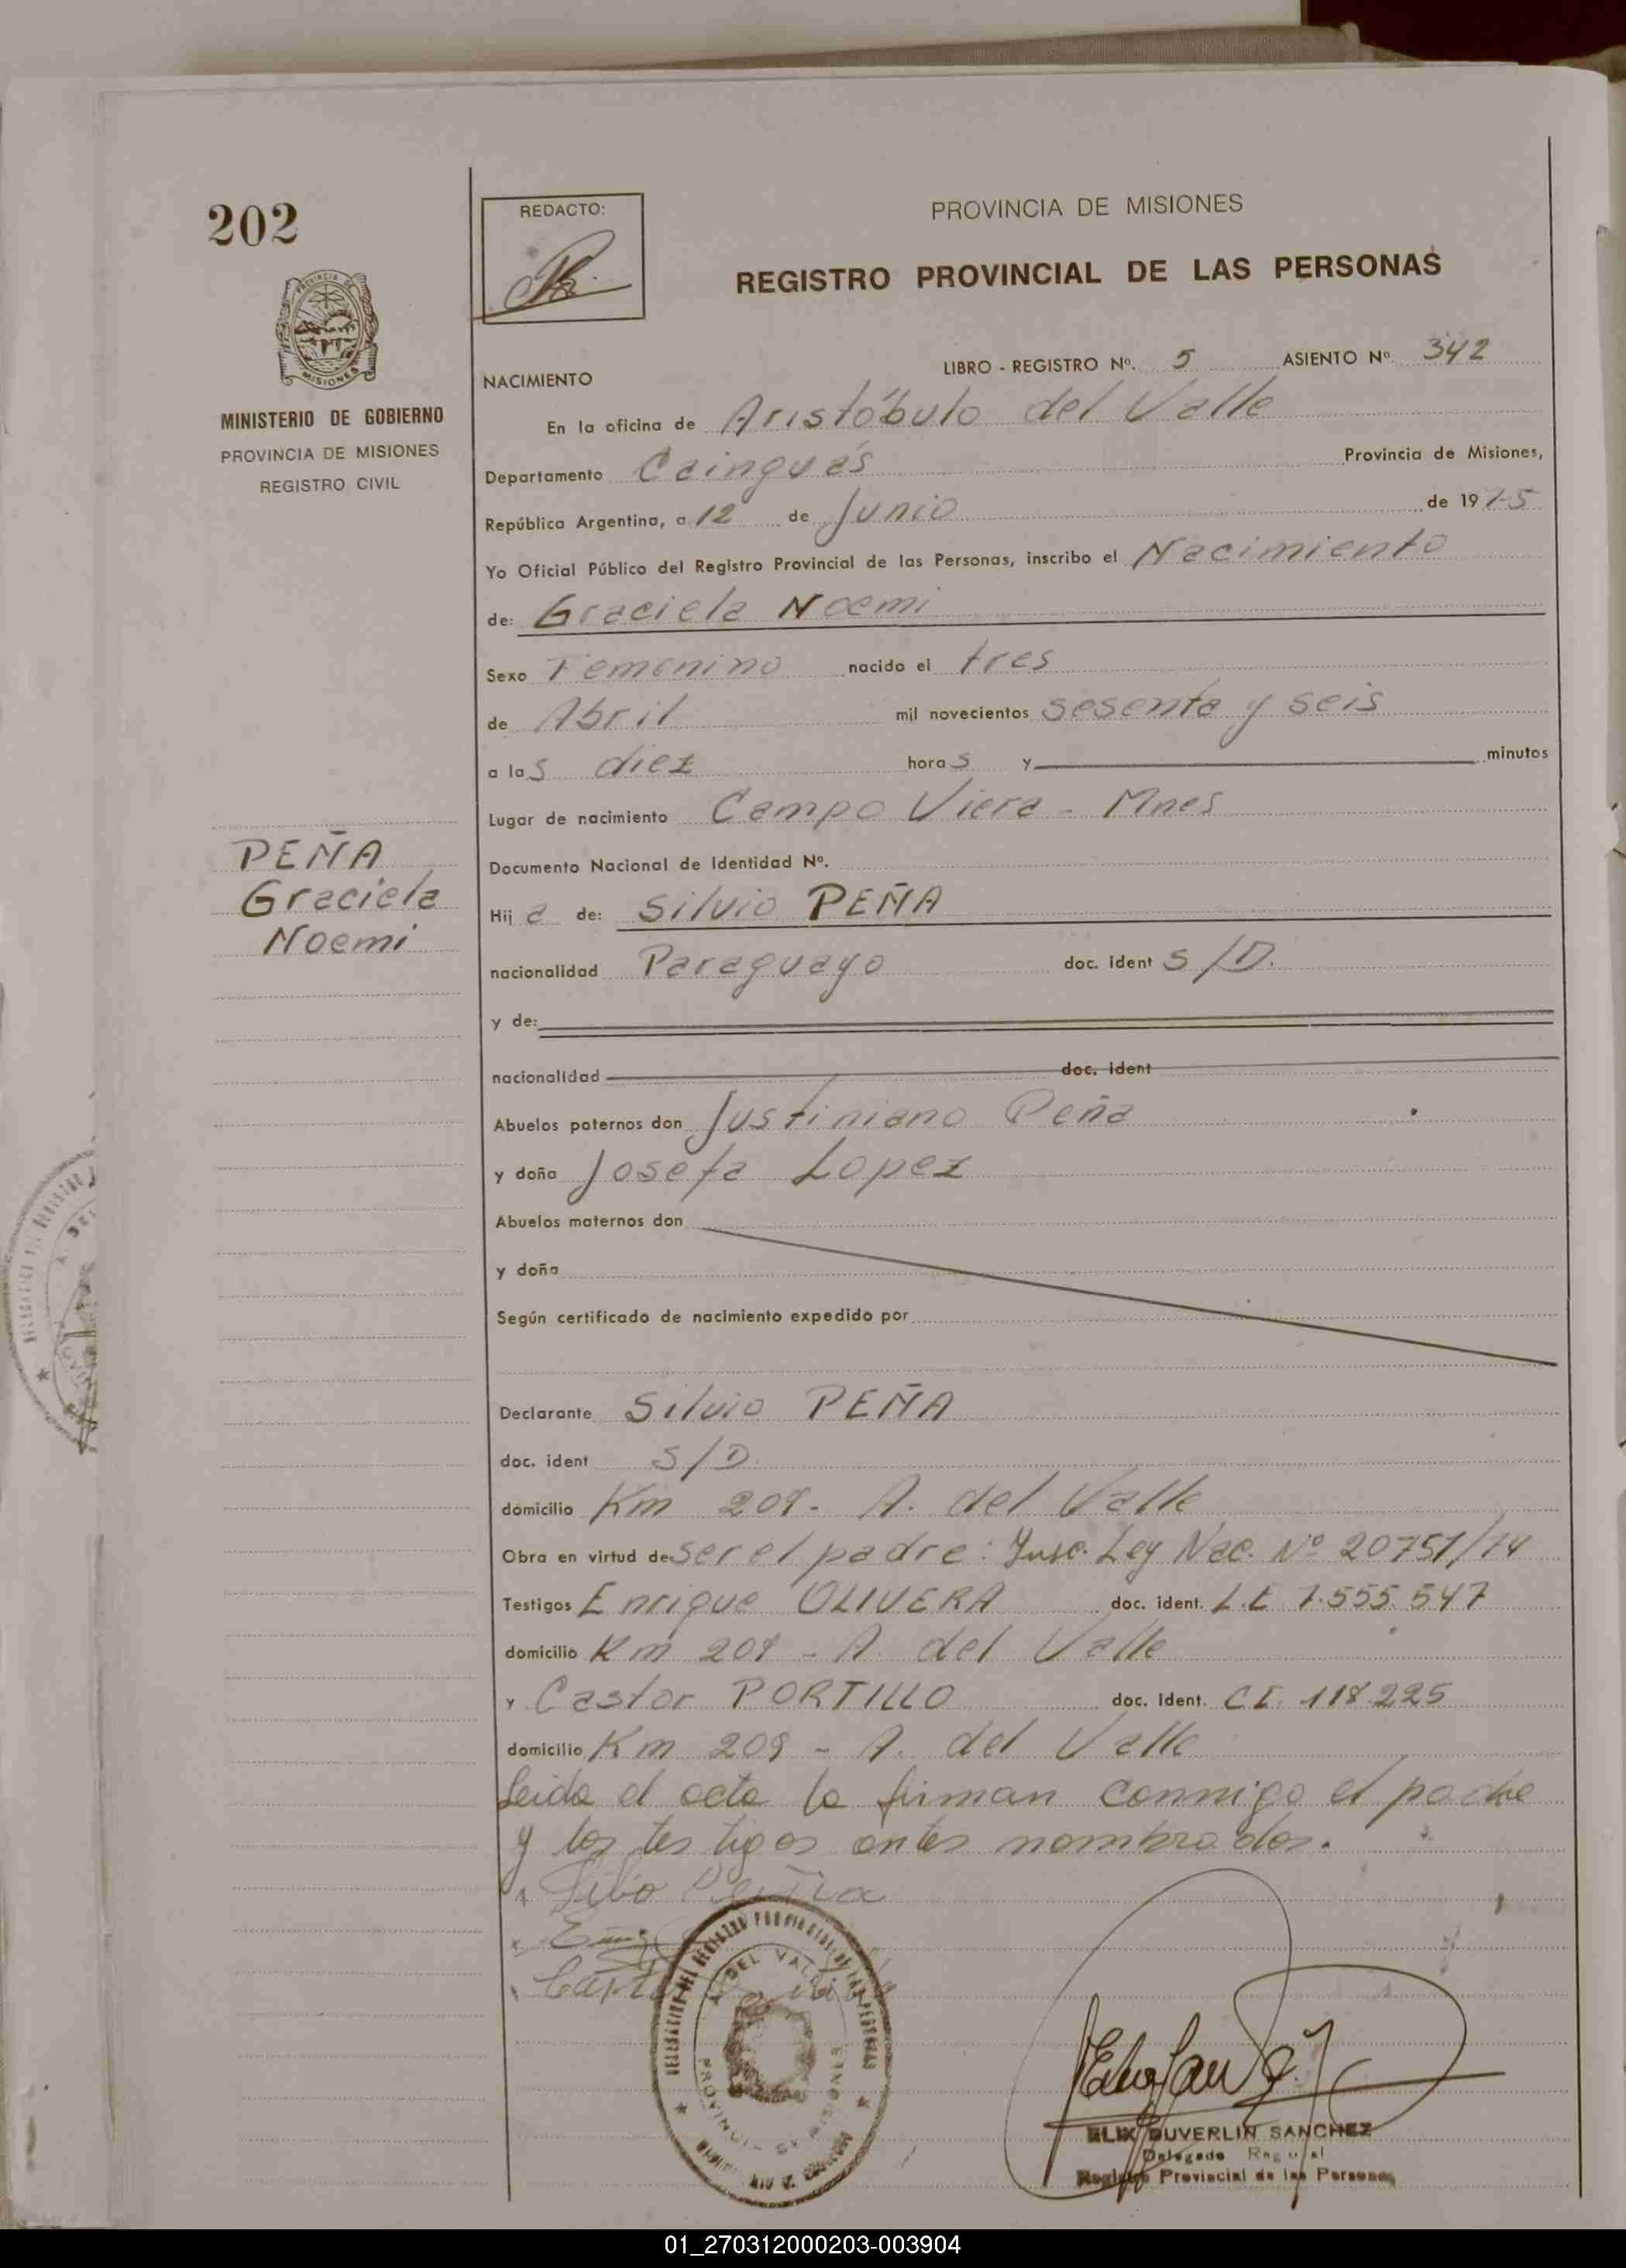 202
REDACTO:
PROVINCIA DE MISIONES
REGISTRO PROVINCIAL DE LAS PERSONAS
MISIONES
MINISTERIO DE GOBIERNO
PROVINCIA DE MISIONES
REGISTRO CIVIL
LIBRO - REGISTRO Nº. 5 ASIENTO Nº. 342
NACIMIENTO
En la oficina de Aristóbulo del Valle
Departamento Cainguás Provincia de Misiones,
República Argentina, a 12 de Junio de 1975
Yo Oficial Público del Registro Provincial de las Personas, inscribo el Nacimiento
de: Graciela Noemi
Sexo Femenino nacido el tres
de Abril mil novecientos sesenta y seis
a las diez horas y minutos
Lugar de nacimiento Campo Viera - Mnes
PEÑA
Graciela
Noemi
Documento Nacional de Identidad Nº.
Hija de: Silvio PEÑA
nacionalidad Paraguayo doc. ident S/D.
y de:
nacionalidad doc. ident
Abuelos paternos don Justiniano Peña
y doña Josefa Lopez
Abuelos maternos don
y doña
Según certificado de nacimiento expedido por
Declarante Silvio PEÑA
doc. ident S/D.
domicilio Km 209- A. del Valle
Obra en virtud de ser el padre: Insc. Ley Nac. Nº 20751/74
Testigos Enrique OLIVERA doc. ident. L.E 7.555.547
domicilio Km 209 - A. del Valle
y Castor PORTILLO doc. ident. C.I. 118.225
domicilio Km 209 - A. del Valle
leida el acta la firman conmigo el padre
y los testigos antes nombrados.
DELEGACION DEL REGISTRO PROVINCIAL DE LAS PERSONAS
A. DEL VALLE
PROVINCIA DE MISIONES
ELIX DUVERLIN SANCHEZ
Delegado
Registro Provincial de las Personas
01_270312000203-003904